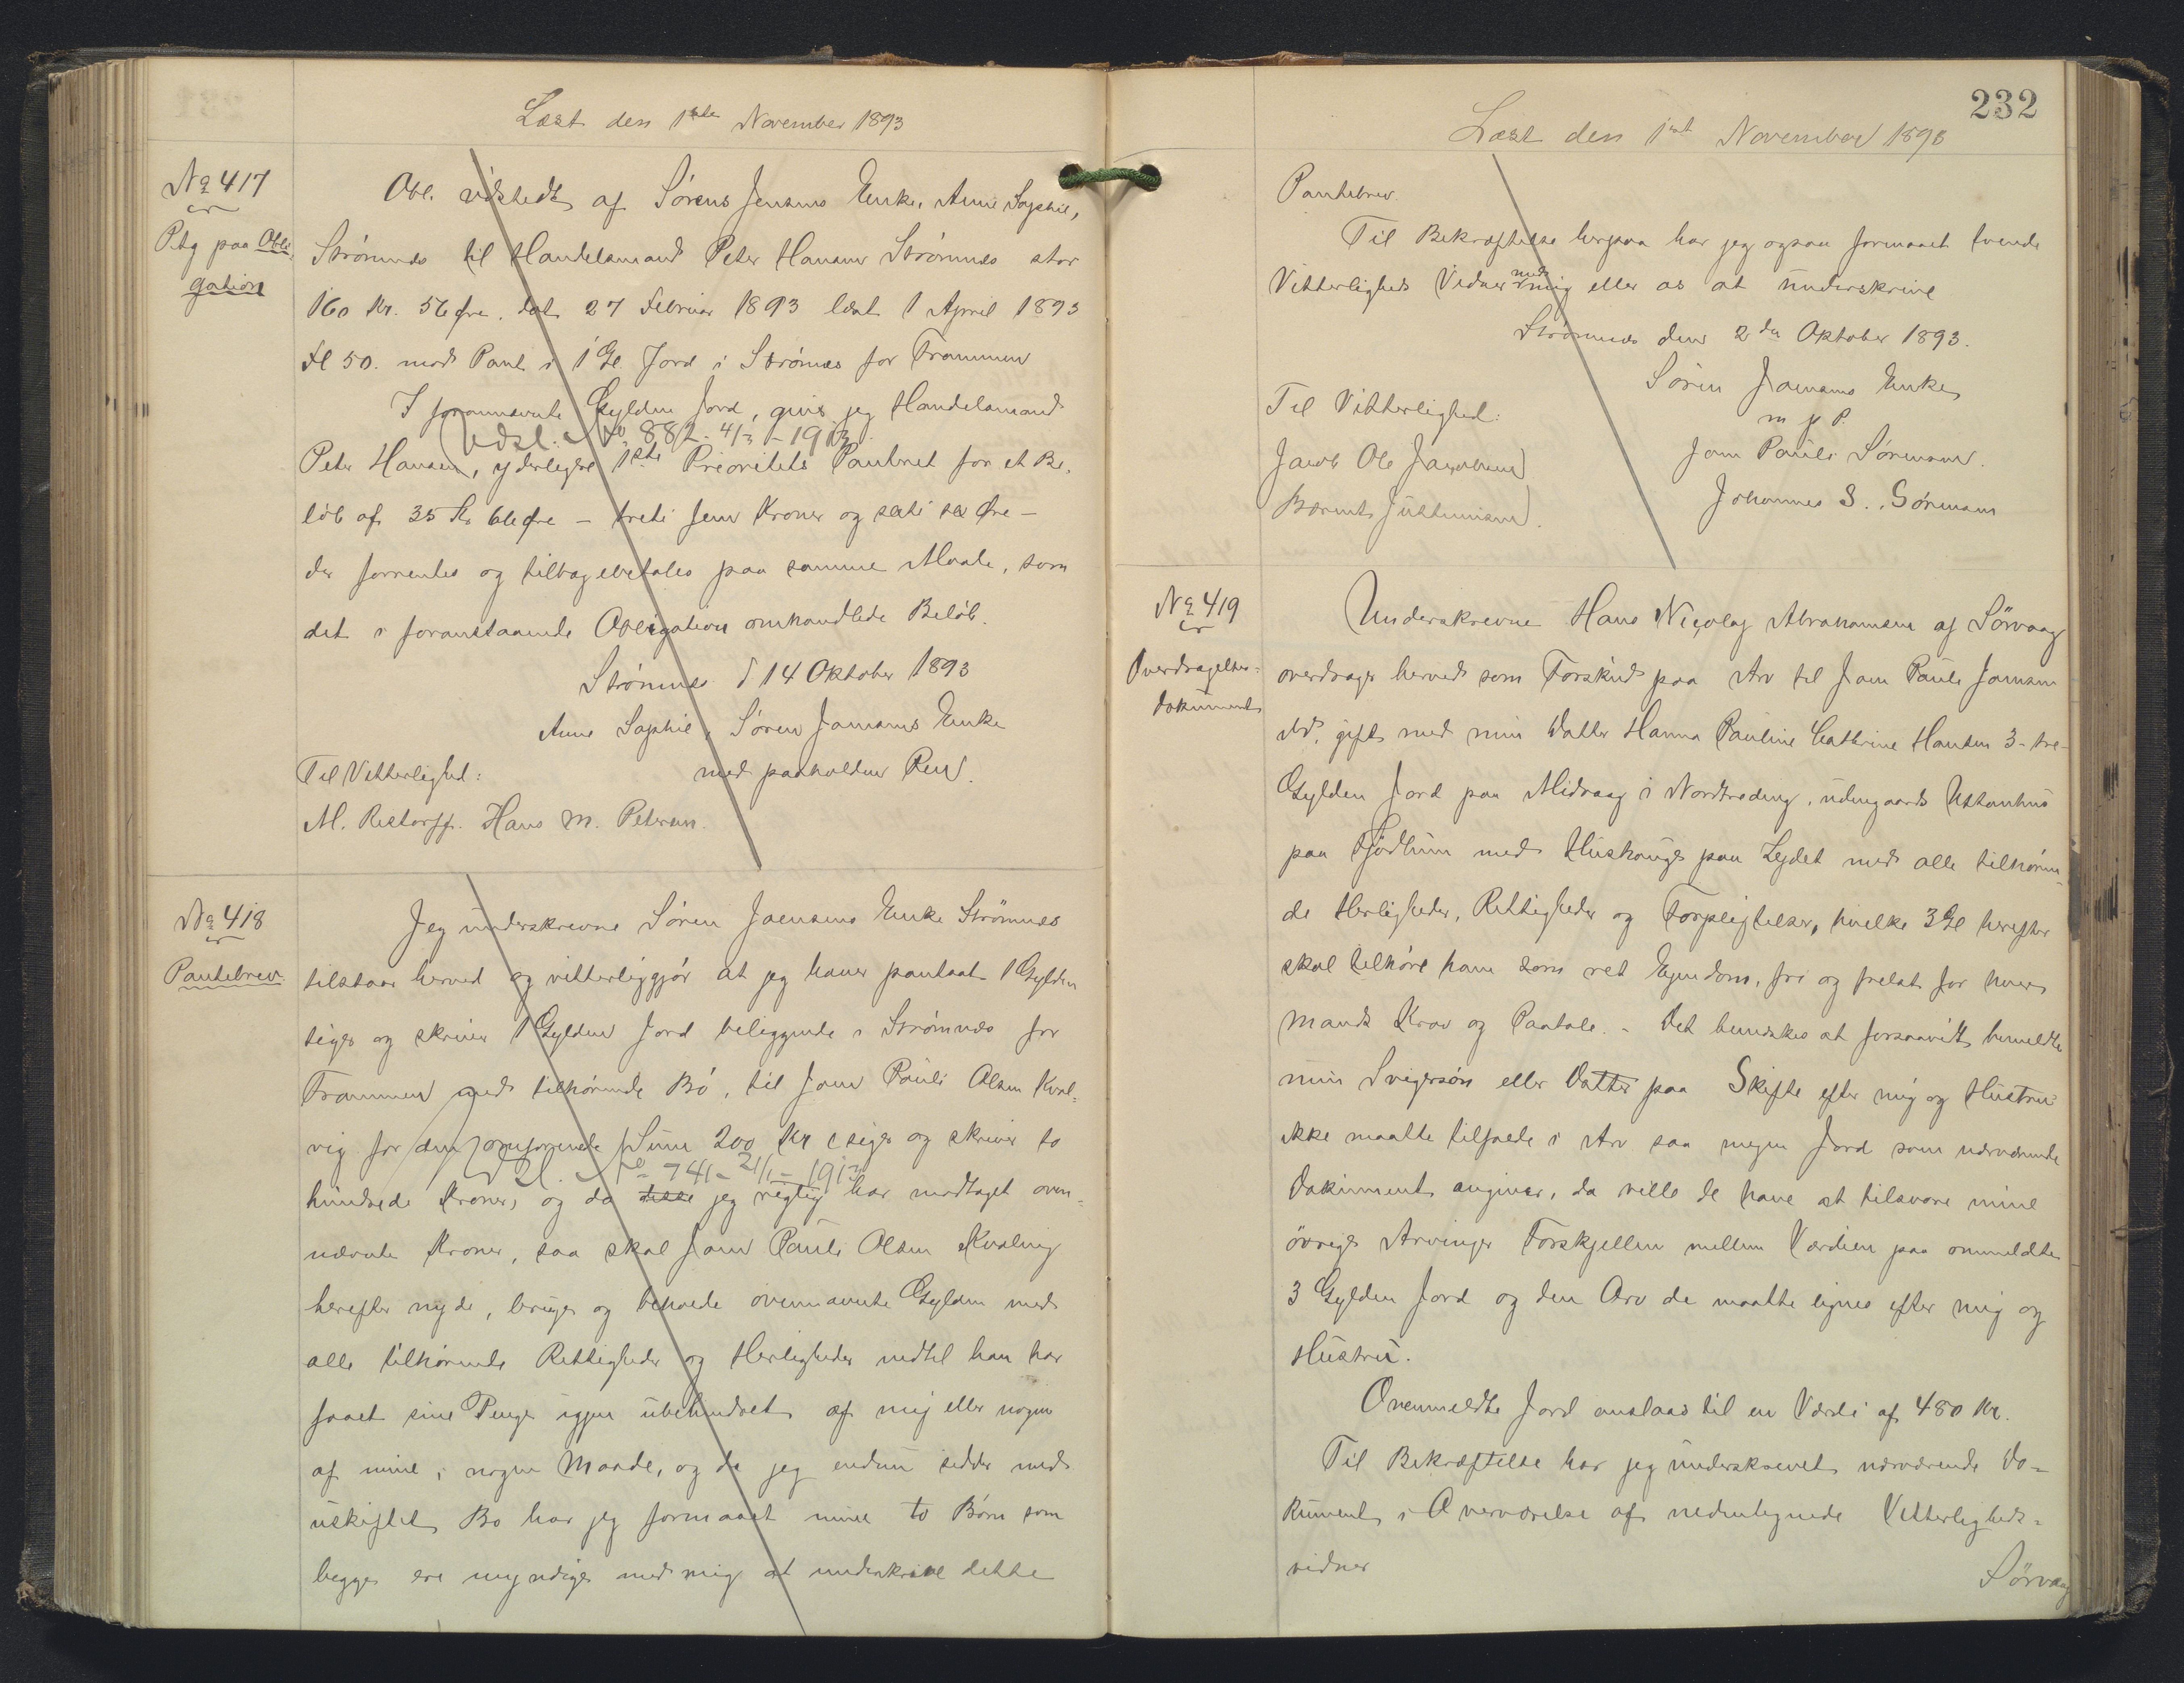 Læst den 1ste November 1893
No 417
Ptg paa Obli-
gation
Obl. udstedt af Sörens Jensens Enke, Anne Sophie,
Strömnæs til Handelsmand Peter Hansen Strömnæs stor
160 Kr. 56 Øre. dat. 27 Februar 1893 læst 1 April 1893
fl 50. mod Pant i 1 Gl. Jord i Strömnæs for Frammen
I forannævnte Gylden Jord, giver jeg Handelsmand
Udsl. No 882 - 4/3 - 1913
Peter Hansen, yderligere 1ste Prioritets Panteret for et Be-
löb af 35 Kr 66 Øre - treti fem Kroner og seksti sex Øre -
der forrentes og tilbagebetales paa samme Maade, som
det i foranstaaende Obligation omhandlede Belöb.
Strömnæs d 14 Oktober 1893
Anne Sophie, Sören Joensens Enke
med paaholden Pen.
Til Vitterlighed:
M. Restorff. Hans M. Petersen.
No 418
Pantebrev.
Jeg underskrevne Sören Joensens Enke Strömnæs
tilstaar herved og vitterliggjör at jeg haver pantsat 1 Gylden
siger og skriver 1 Gylden Jord beliggende i Strömnæs for
Frammen med tilhörende Bö, til Joen Pauli Olsen Kval-
vig for den omforenede Sum 200 Kr siger og skriver to
Udsl. No 741 - 21/1 - 1913
hundrede Kroner, og da disse jeg rigtig har modtaget oven-
nævnte Kroner, saa skal Joen Pauli Olsen Kvalvig
herefter nyde, bruge og beholde ovennævnte Gylden med
alle tilhörende Rettigheder og Herligheder indtil han har
faaet sine Penge igjen ubehindret af mig eller nogen
af mine i nogen Maade, og da jeg endnu sidder med
uskiftet Bo har jeg formaaet mine to Börn som
begge ere myndige med mig at underskrive dette
232
Læst den 1ste November 1893
Pantebrev.
Til Bekræftelse herpaa har jeg ogsaa formaaet tvende
Vitterligheds Vidner med mig eller os at underskrive
Strömnæs den 2den Oktober 1893.
Sören Joensens Enke
m p P.
Til Vitterlighed:
Joen Pauli Sörensen.
Jacob Ole Jacobsen
Johannes S. Sörensen
Berent Justinussen.
No 419
Overdragelses-
dokument
Underskrevne Hans Nicolaj Abrahamsen af Sörvaag
overdrager herved som Forskud paa Arv til Joen Pauli Joensen
ibd. gift med min Datter Hanna Pauline Cathrine Hansen 3 - tre -
Gylden Jord paa Midvaag i Nordtröding, udengaards Uttanhus
paa med Hushauge paa Lejdet med alle tilhören-
de Herligheder, Rettigheder og Forpligtelser, hvilke 3 Gl herefter
skal tilhöre ham som ret Ejendom, fri og frelst for hver
Mands Krav og Paatale. - Det bemærkes at forsaavidt bemeldte
min Svigersön eller Datter paa Skifte efter mig og Hustru
ikke maatte tilfalde i Arv saa megen Jord som nærværende
Dokument angiver, da ville de have at tilsvare mine
övrige Arvinger Forskjellen mellem Værdien paa ommeldte
3 Gylden Jord og den Arv de maatte lignes efter mig og
Hustru.
Ovenmeldte Jord anslaas til en Værdi af 480 Kr.
Til Bekræftelse har jeg underskrevet nærværende Do-
kument i Overværelse af nedentegnede Vitterligheds-
vidner
Sörvaag